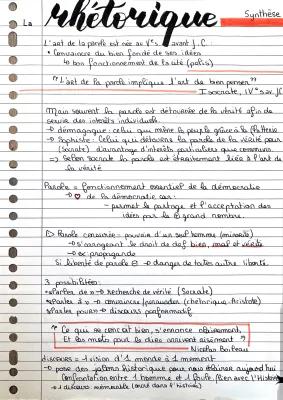 Synthèse
La rhétorique
L'art de la parole est née au Ve s. avant J.C :
• Convaincre du bien fondé de ses idées
↳ bon fonctionnement de la cité (polis)
"L'art de la parole implique l'art de bien penser"
Isocrate, IVe s av. JC
Mais souvent la parole est détournée de la vérité afin de
servir des intérêts individuels.
→ démagogue : celui qui mène le peuple grâce à la flatterie
→ Sophiste : Celui qui détourne la parole de la vérité pour
(Socrate) d'avantage d'intérêts particuliers que communs.
=> Selon Socrate la parole est étroitement liée à l'art de
la vérité
Parole = fonctionnement essentiel de la démocratie
→ ♡ de la démocratie car :
- permet le partage et l'acceptation des
idées par le grand nombre.
▷ Parole censurée = pouvoir d'un seul homme (minorité)
→ s'arrogeant le droit de def bien, mal et vérité
→ propagande
Si liberté de parole ⊖ → danger de toutes autre liberté.
3 possibilités :
• Parler de → recherche de vérité (Socrate)
• Parler à → convaincre/persuader (rhétorique, Aristote)
• Parler pour → discours performatif
"Ce que se conçoit bien, s'énonce clairement,
Et les mots pour le dire arrivent aisément"
Nicolas Boileau
discours = 1 vision d'1 monde à 1 moment
→ pose des jalons historiques pour nous éclairer aujourd'hui
Confrontation entre 1 homme et 1 foule (lien avec l'Histoire)
→ discours mémorable (ancré dans l'histoire)